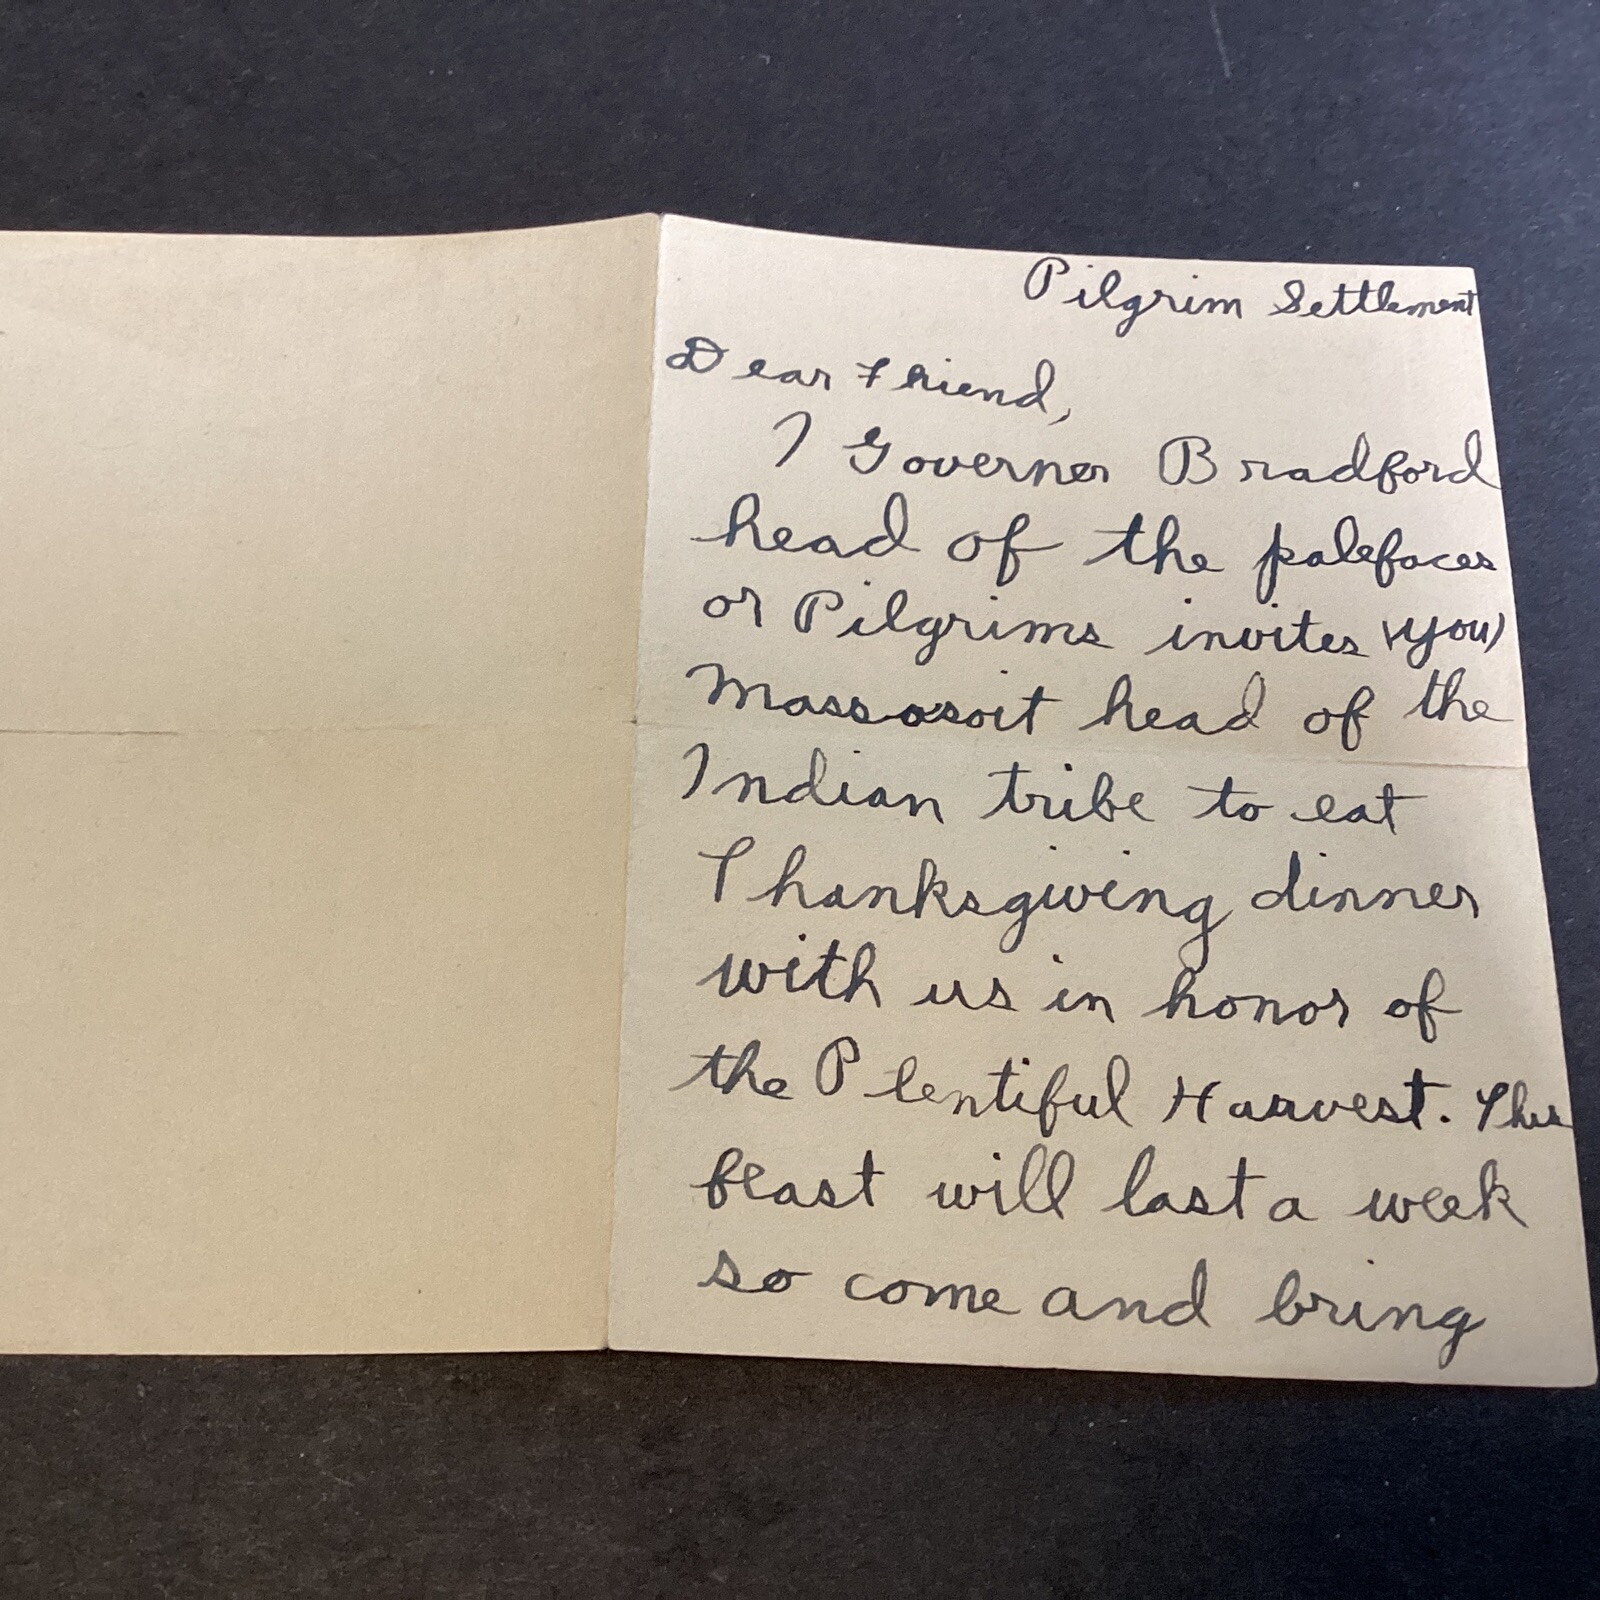 Pilgrim Settlement
Dear Friend,
I Governer Bradford
head of the palefaces
or Pilgrims invites (you)
Massosoit head of the
Indian tribe to eat
Thanksgiving dinner
with us in honor of
the Plentiful Harvest. This
feast will last a week
so come and bring